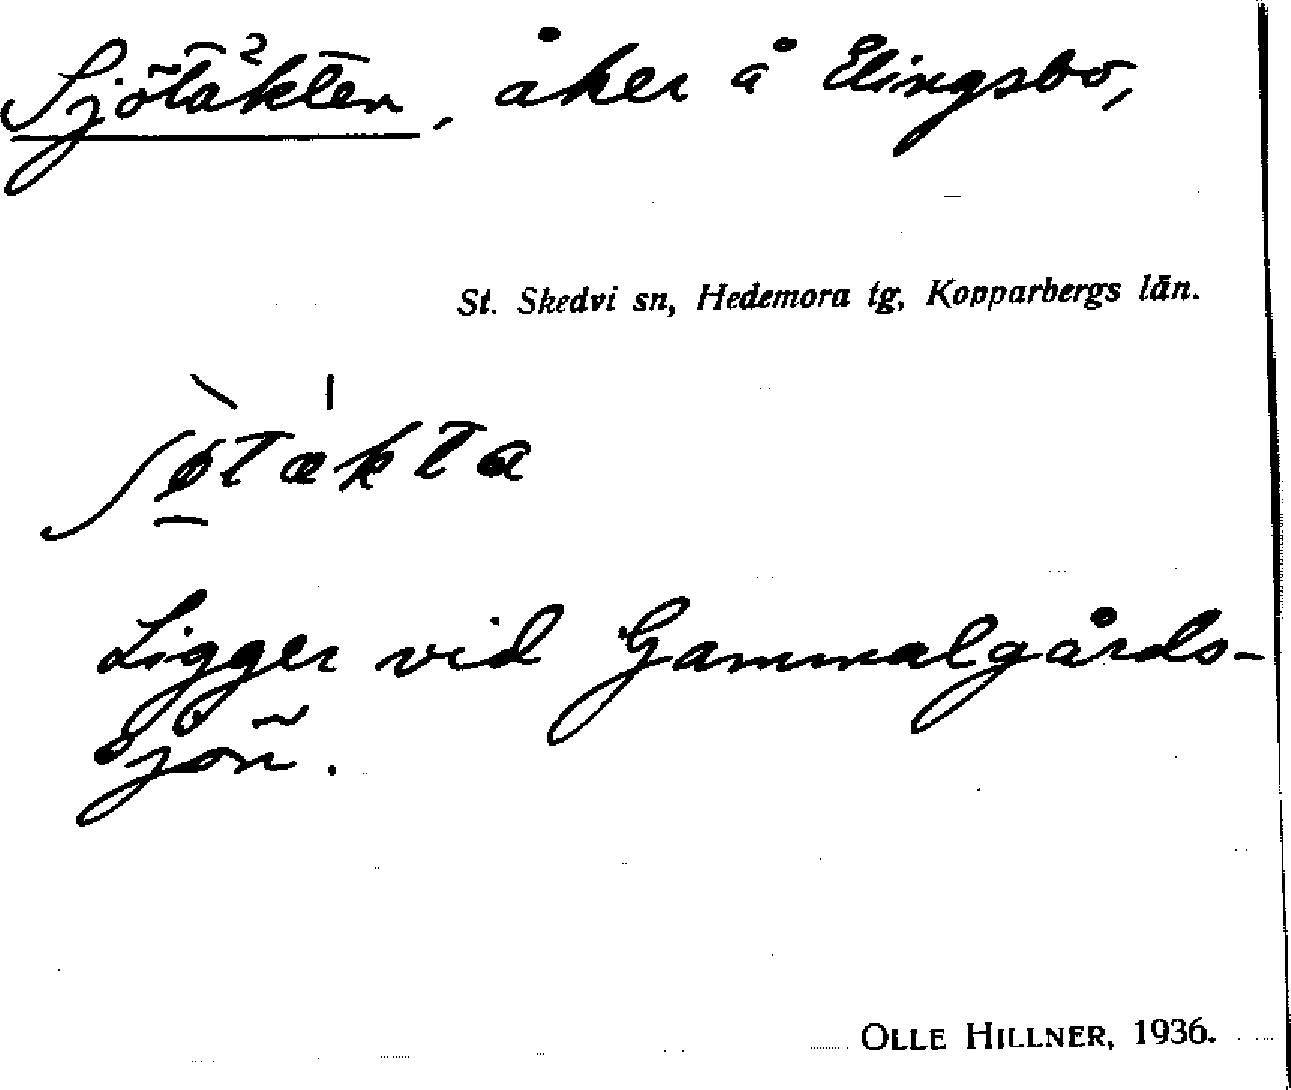 Sjötäkten, åker å Elingsbo,
St. Skedvi sn, Hedemora tg, Kopparbergs län.
ʃø̱̀tæ̍kta
Ligger vid Gammalgårds-
sjön.
OLLE HILLNER, 1936.